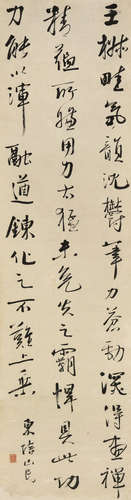 王椒畦氣韻沈鬱筆力蒼勁深得畫禪
精蘊所嫌用力太猛未免失之霸悍具此功
力能以渾融道鍊化之不難上乘
東培山民